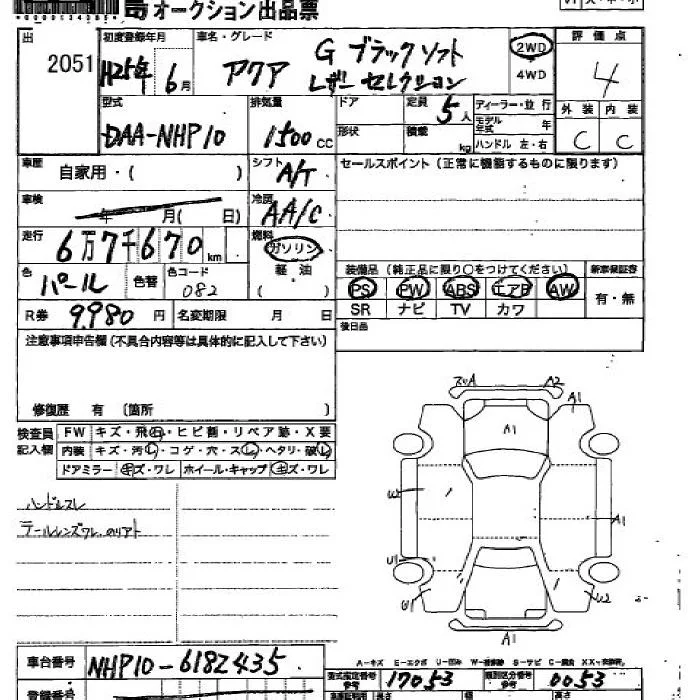 オークション出品票
出 2051
初度登録年月 H25年 6月
車名・グレード アクア G ブラックソフト レザーセレクション
2WD
4WD
評価点 4
外装 内装
C C
型式 DAA-NHP10
排気量 1500 cc
ドア
形状
定員 5人
積載 kg
ディーラー・並行
モデル年式 年
ハンドル 左・右
車歴 自家用・( )
シフト A/T
セールスポイント (正常に機能するものに限ります)
車検 年 月( 日)
冷房 AA/C
走行 6万7千670km
燃料 ガソリン
軽油
( )
色 パール
色替
色コード 082
装備品 (純正品に限り○をつけてください)
新車保証書
PS PW ABS エアB AW
SR ナビ TV カワ
有・無
R券 9,980 円
名変期限 月 日
後日品
注意事項申告欄(不具合内容等は具体的に記入して下さい)
修復歴 有 〔箇所 〕
検査員記入欄
FW キズ・飛石・ヒビ割・リペア跡・X要
内装 キズ・汚レ・コゲ・穴・スレ・ヘタリ・破レ
ドアミラー キズ・ワレ ホイール・キャップ キズ・ワレ
ハンドルスレ
テールレンズワレ
A2
A1
A1
W
A1
U1
U1
W2
A1
A-キズ E-エクボ
車台番号 NHP10-6182435
型式指定番号 参考 17053
類別区分番号 参考 0053
登録番号
長さ
幅
高さ